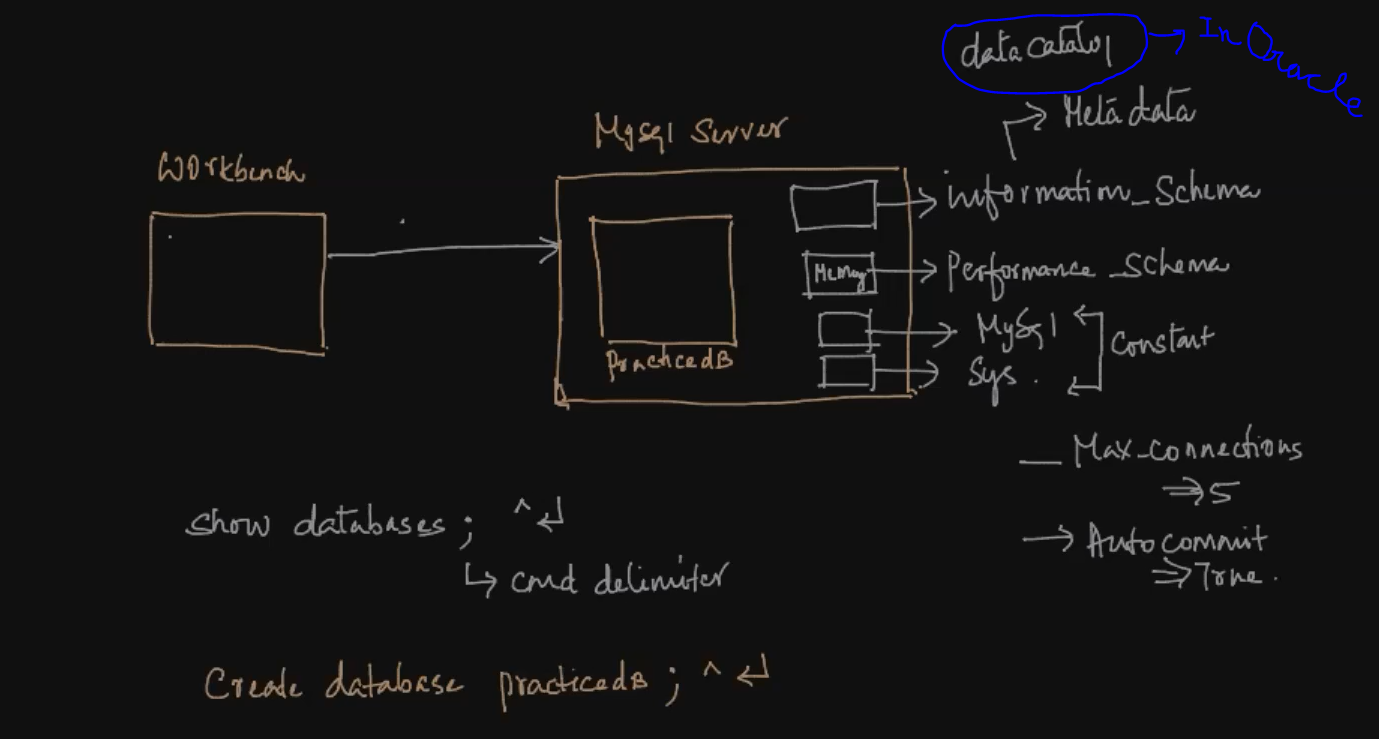 data catalog → In Oracle
Meta data
Mysql Server
Workbench
information_Schema
Memory
Performance_Schema
MySql
Constant
Sys.
PracticedB
— Max_connections
⇒ 5
show databases; ^↵
→ Autocommit
⇒ True.
↳ cmd delimiter
Create database practicedB; ^↵